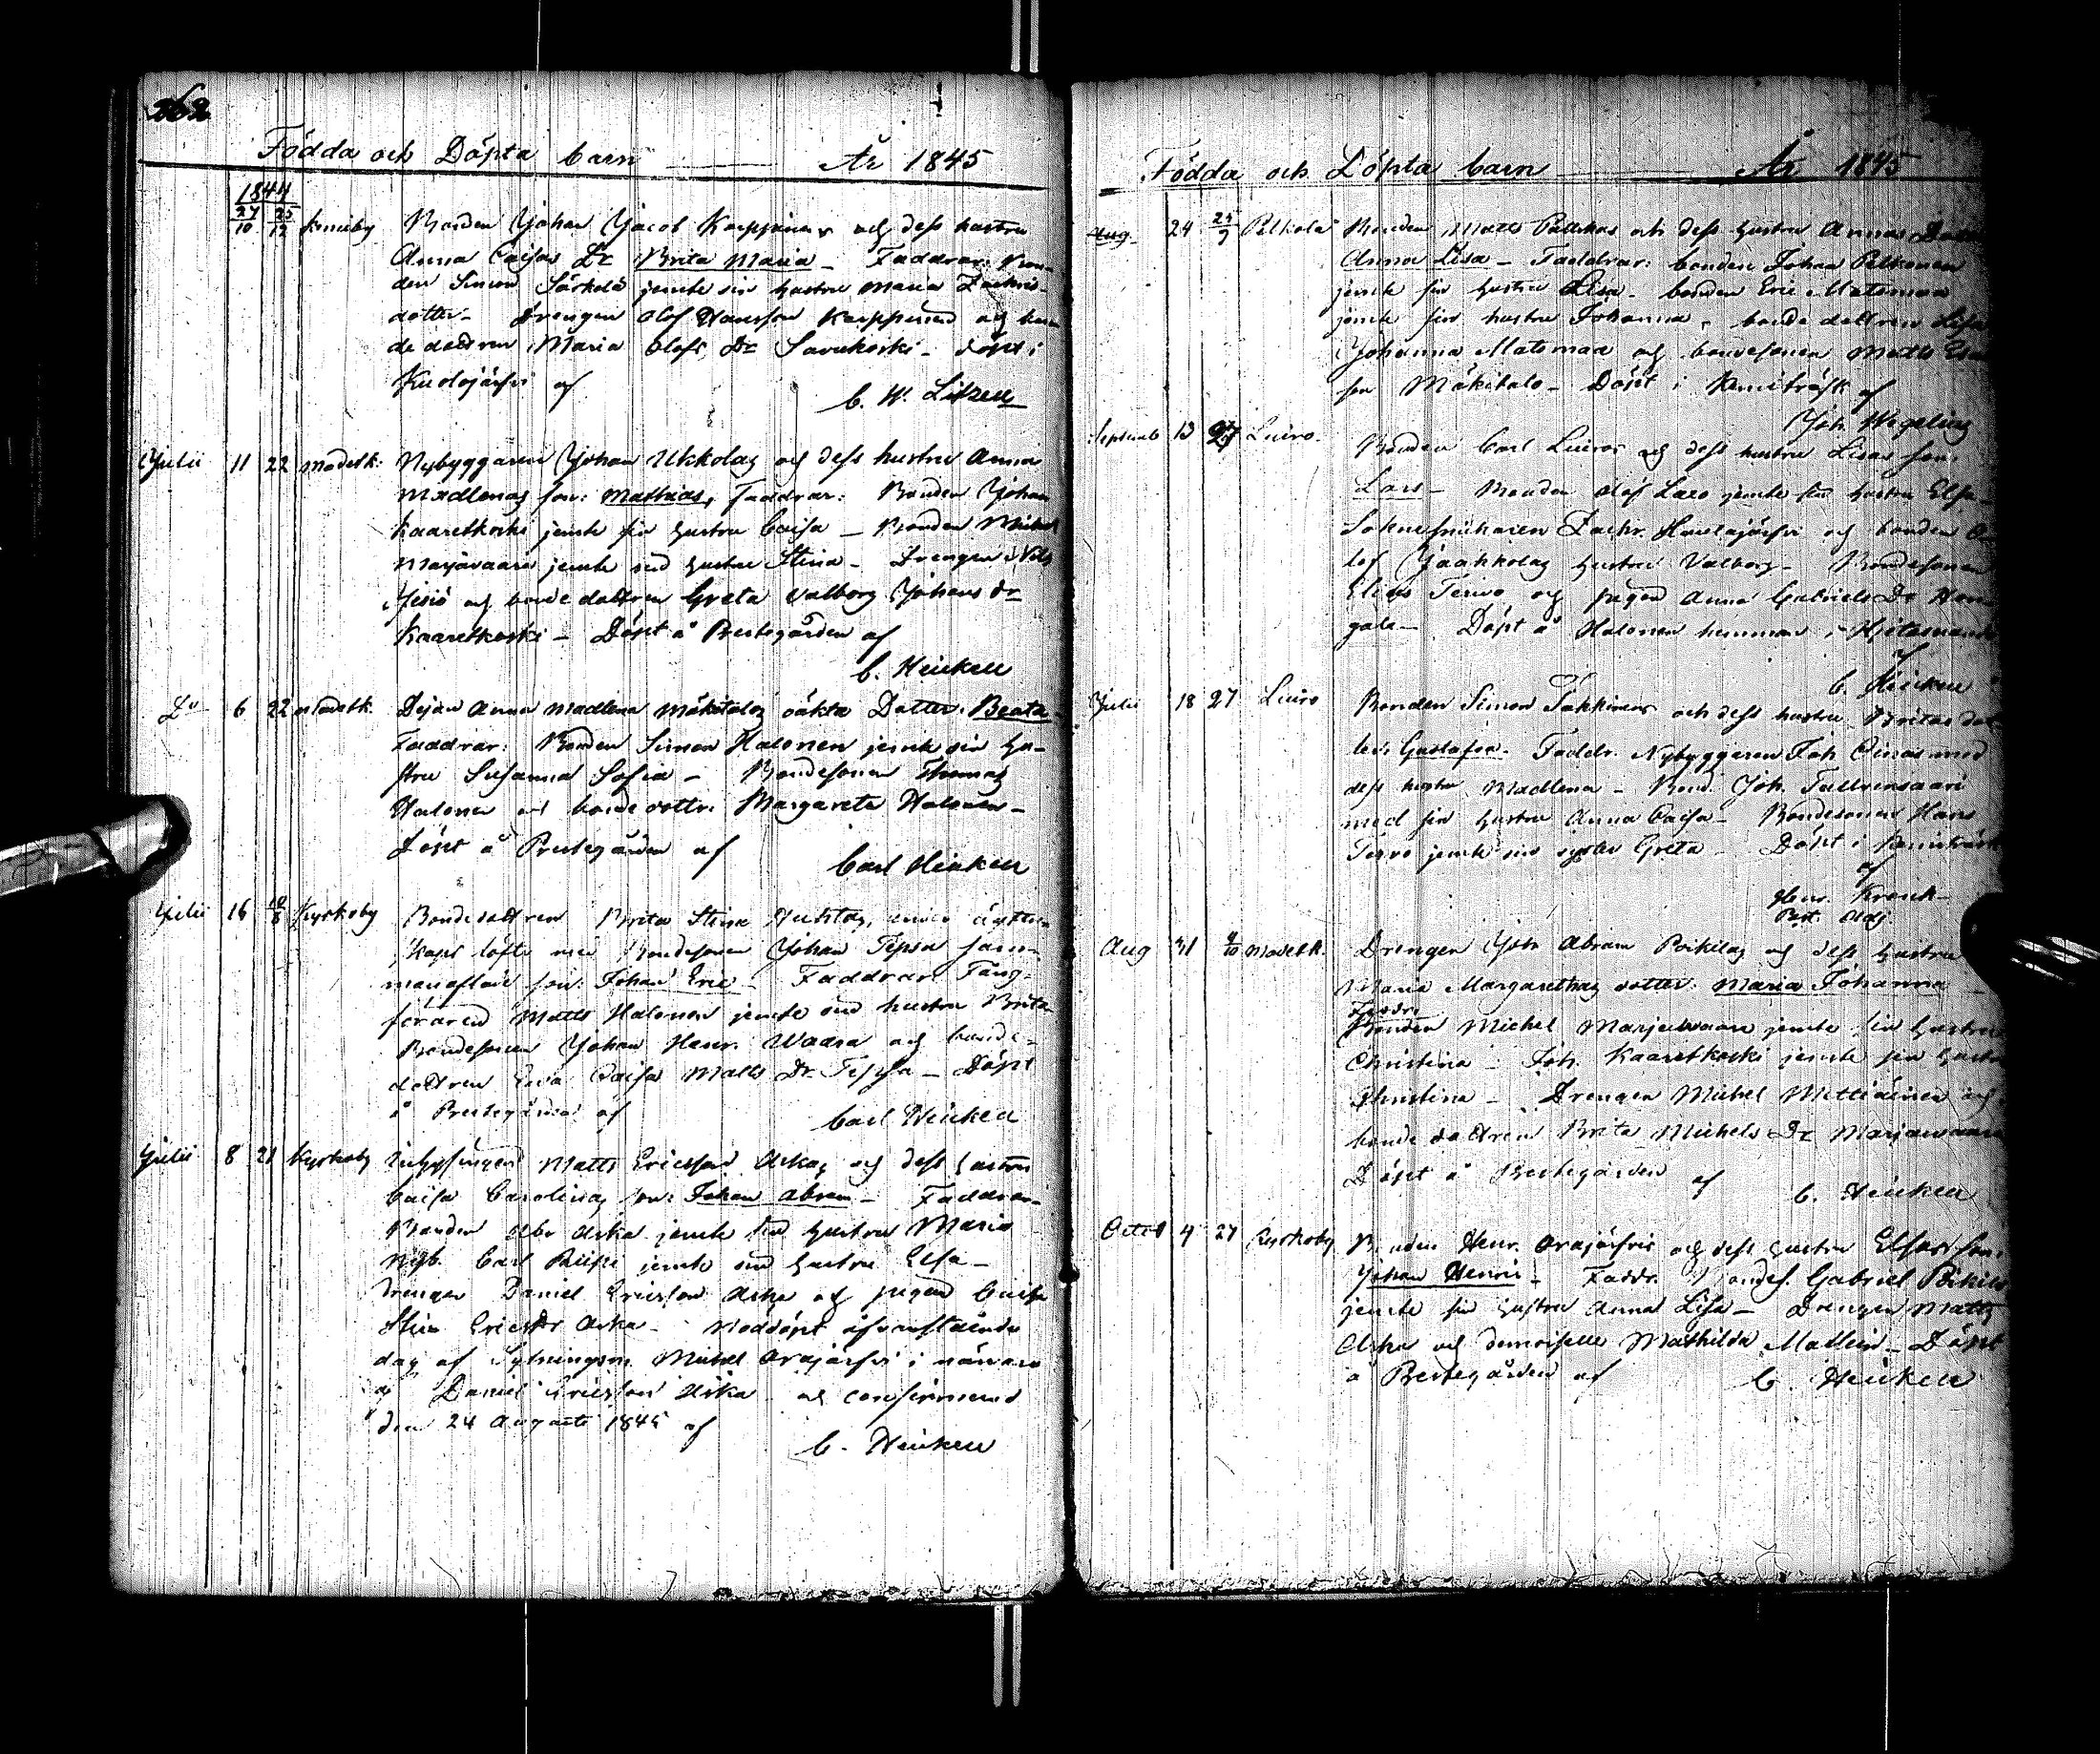 Födda och Döpta barn År 1845
1844
27/10 25/12 Kemiby Bonden Johan Jacob Karppinens och dess hustru
Anna Caisas Dr Brita Maria – Faddrar: Bon-
den Simon Särkelä jemte sin hustru Maria Zachris-
dotter – Drengen Olof Hansson Karppinen och bon-
de dottren Maria Olofs Dr Savukoski – döpt i
Kuolajärfvi af
C. W. Litzen
Julii 11 22 Madetk: Nybyggaren Johan Ukkolas och dess hustru Anna
Madlenas son: Mathias, Faddrar: Bonden Johan
Kaaretkoski jemte sin hustru Caisa – Bonden Michel
Marjavaara jemte sin hustru Stina – Drengen Nils
och bonde dottren Greta Valborg Johans dr
Kaaretkoski – Döpt å Prestegården af
C. Heickell
Do 6 22 Madetk. Dejan Anna Madlena Mäkitalos oäkta Dotter: Beata
Faddrar: Bonden Simon Halonen jemte sin hu-
stru Susanna Sofia – Bondesonen Thomas
Halonen och bonde dottr. Margareta Halonen –
Döpt å Prestegården af
Carl Heickell
Julii 16 10/8 Kyrkoby Bondedottren Brita Stina under ägten-
skaps löfte med Bondesonen Johan Tepsa sam-
manaflade son: Johan Eric – Faddrar: Fång-
föraren Matts Halonen jemte sin hustru Brita
Bondesonen Johan Henr. Waara och bonde-
dottren Eva Caisa Matts Dr Tepsa – Döpt
å Prestegården af
Carl Heickell
Julii 8 21 Kyrkoby Matts Ericsson Askas och dess hustru
Caisa Carolinas son: Johan Abram – Faddrar
Bonden Abr Aska jemte sin hustru Maria
Nyb. Carl jemte sin hustru Elsa –
Drengen Daniel Ericsson Aska och pigan Caisa
Stina Ericsdr Aska – Nöddöpt ofvanstående
dag af Michel Orajärfvi i närvaro
af Daniel Ericsson Aska och confirmerad
den 24 Augusti 1845 af
C. Heickell
Födda och Döpta barn År 1845
Aug. 24 25/9 Pelkola Bonden Matts och dess hustru Annas Dotter
Anna Lisa – Faddrar: bonden Johan Pelkonen
jemte sin hustru Lisa – bonden Eric Matomaa
jemte sin hustru Johanna, bonde dottren Lisa
Johanna Matomaa och bondesonen Matts
son Mäkitalo – Döpt i Kemiträsk af
Joh. Wegelius
Septemb 13 27 Luiro. Bonden Carl Luiros och dess hustru Lisas son:
Lars – Bonden Olof jemte sin hustru Elsa
Zachr. Hoviajärfvi och bonden O-
lof Jaakkolas hustru Valborg – Bondesonen
Elias Tervo och pigan Anna Gabriels Dr
Döpt å Halonen hemman i
af
C. Heickell
Julii 18 27 Luiro Bonden Simon och dess hustru Britas dot-
ter: Gustafva. Faddr. Nybyggaren Joh. Oinas med
dess hustru Madlena – Bond. Joh.
med sin hustru Anna Caisa – Bondesonen Hans
Tervo jemte sin syster Greta – Döpt i Kemiträsk
af
Henr. Kranck
Past. Adj.
Aug 31 4/10 Madetk. Drengen Joh Abram Poikelas och dess hustru
Maria Margarethas dotter: Maria Johanna –
Faddr.
Bonden Michel Marjavaara jemte sin hustru
Christina – Joh. Kaaretkoski jemte sin hustru
Christina – Drengen Michel Mettiäinen och
bonde dottren Brita Michels Dr Marjavaara
Döpt å Prestegården af
C. Heickell
Octob 4 27 Kyrkoby Bonden Henr. Orajärfvis och dess hustru Elsas son:
Johan Henric – Faddr. Bondes. Gabriel Poikela
jemte sin hustru Anna Lisa – Drengen Matts
Aska och demoiselle Mathilda – Döpt
å Prestegården af
C. Heickell